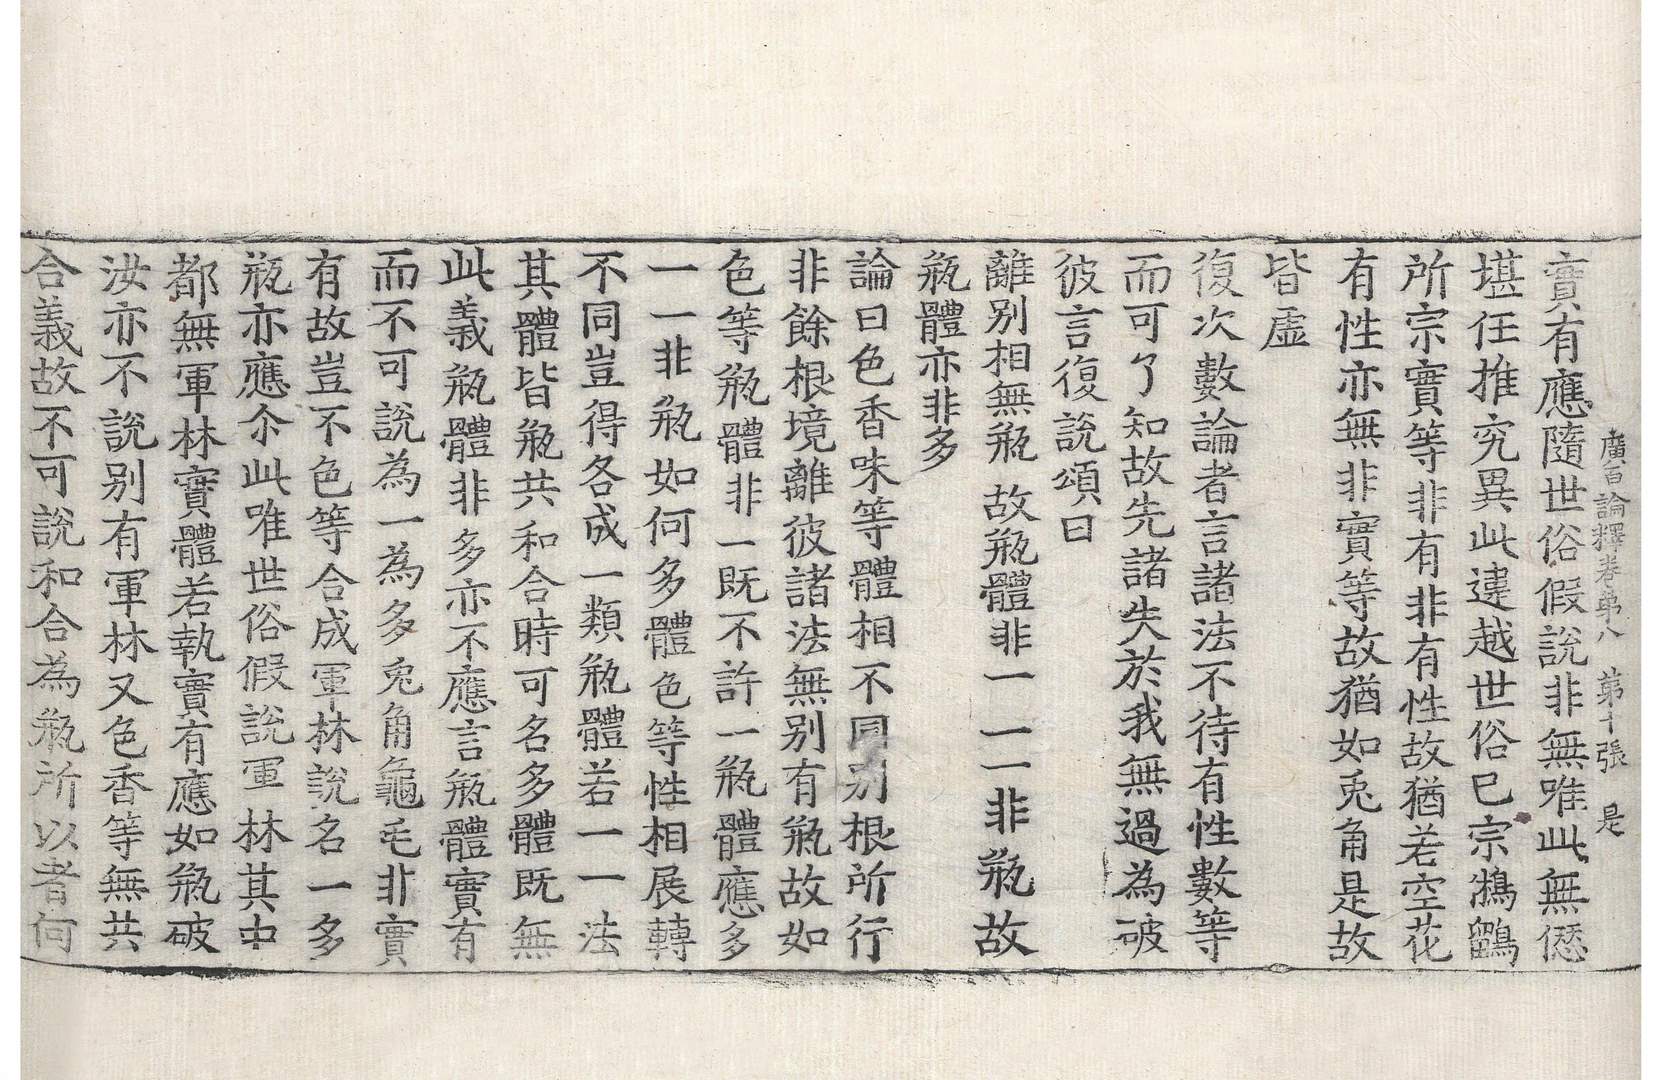 廣百論釋卷第八　第十張　是
實有應隨世俗假說非無唯此無𠎝
堪任推究異此違越世俗已宗鵂鶹
所宗實等非有非有性故猶若空花
有性亦無非實等故猶如兎角是故
皆虛
復次數論者言諸法不待有性數等
而可了知故先諸失於我無過為破
彼言復說頌曰
離別相無瓶　故瓶體非一　一一非瓶故
瓶體亦非多
論曰色香味等體相不同別根所行
非餘根境離彼諸法無別有瓶故如
色等瓶體非一既不許一瓶體應多
一一非瓶如何多體色等性相展轉
不同豈得各成一類瓶體若一一法
其體皆瓶共和合時可名多體既無
此義瓶體非多亦不應言瓶體實有
而不可說為一為多兎角龜毛非實
有故豈不色等合成軍林說名一多
瓶亦應尒此唯世俗假說軍林其中
都無軍林實體若執實有應如瓶破
汝亦不說別有軍林又色香等無共
合義故不可說和合為瓶所以者何